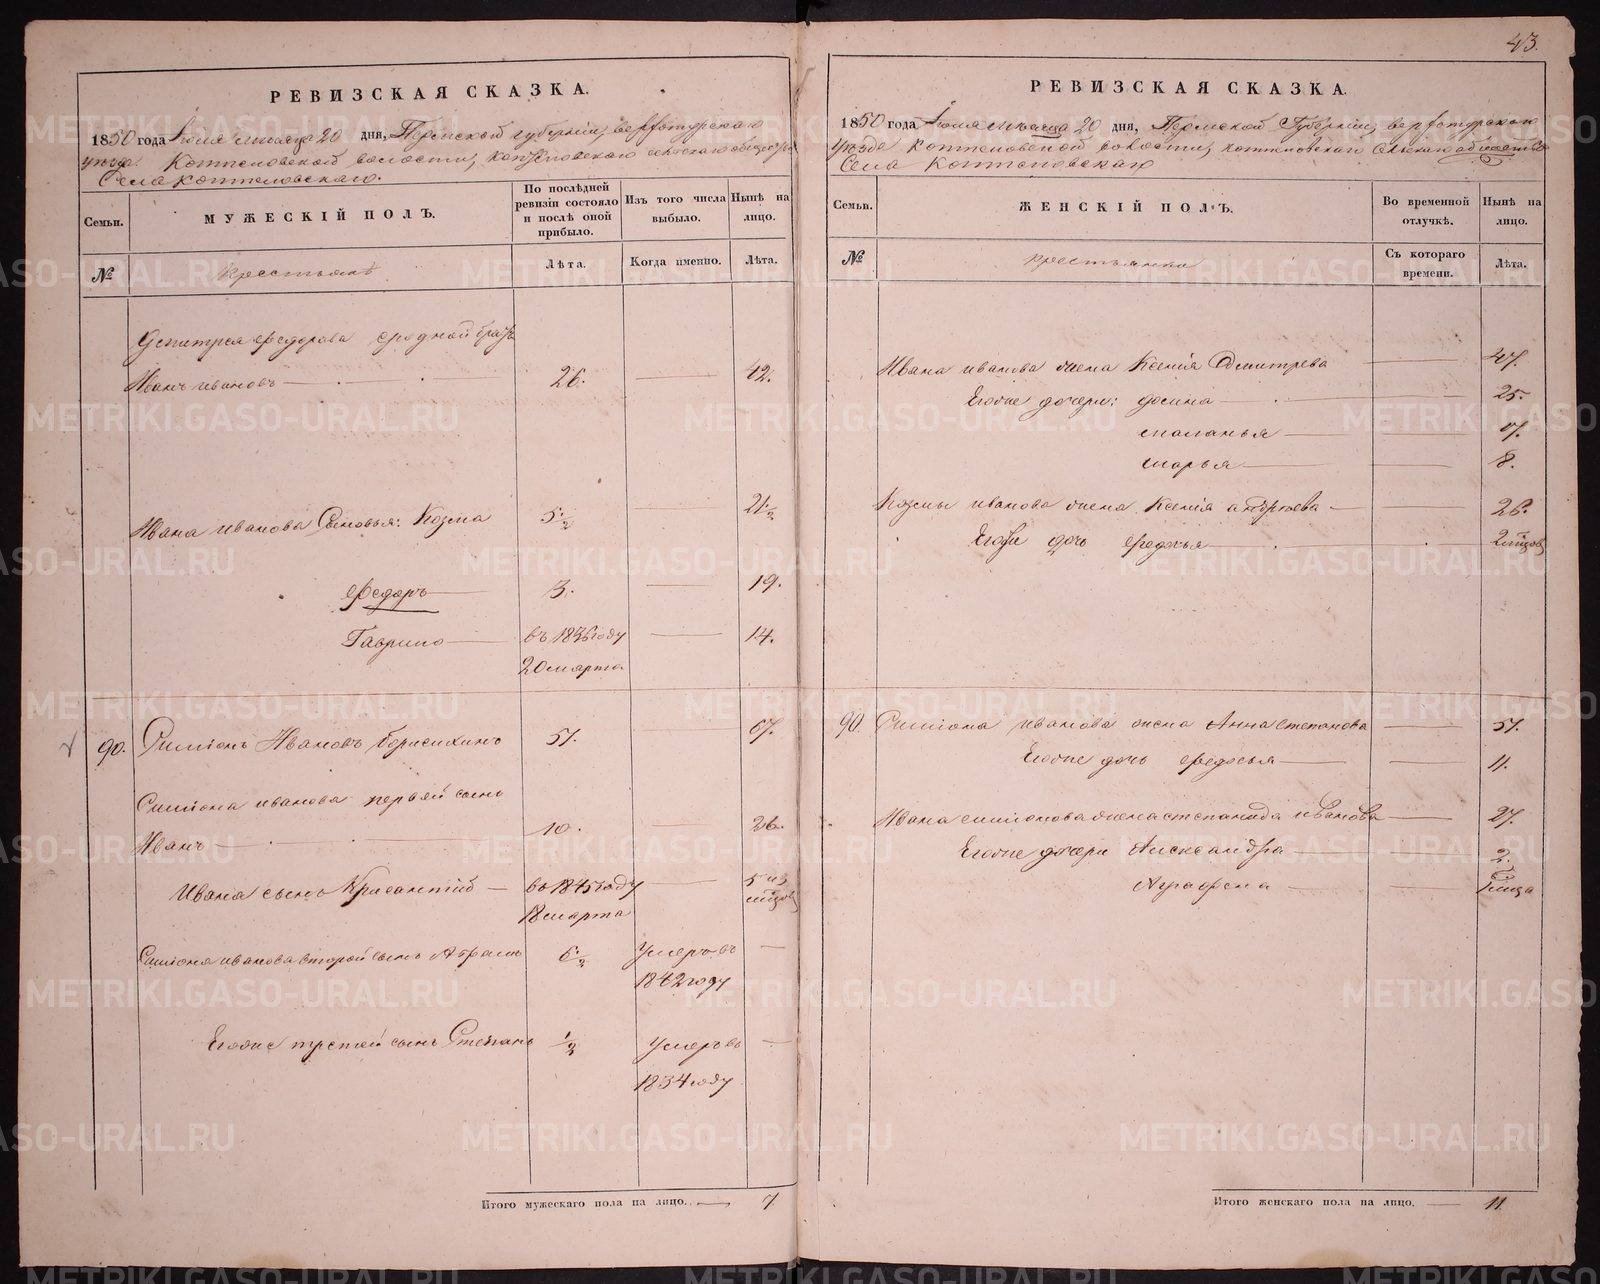 43.
РЕВИЗСКАЯ СКАЗКА.
1850 года Іюля мѣсяца 20 дня, Пермской губерніи, верхотурскаго
уѣзда Коптеловской волости, коптеловскаго сельскаго общества
Села коптеловскаго.
Семьи.
МУЖЕСКІЙ ПОЛЪ.
По послѣдней ревизіи состояло и послѣ оной прибыло.
Изъ того числа выбыло.
Нынѣ на лицо.
№
Крестьянъ
Лѣта.
Когда именно.
Лѣта.
Дмитрея Федорова сродной братъ
Иванъ ивановъ 26. 42.
Ивана иванова Сыновья: Козма 5 1/2 21 1/2
Федоръ 3. 19.
Гаврило въ 1836 году 14.
20 марта
90. Симіонъ Ивановъ Борисихинъ 51. 67.
Симіона иванова первый сынъ
Иванъ 10. 26.
Ивана сынъ Крисантій въ 1845 году 5 из
18 марта мѣцов
Симіона иванова второй сынъ Абрамъ 6 1/2 Умеръ въ
1842 году
Егоже третей сынъ Степанъ 1/2 умеръ въ
1834 году
Итого мужескаго пола на лицо. 7
РЕВИЗСКАЯ СКАЗКА.
1850 года Іюля мѣсяца 20 дня, Пермской Губерніи, верхотурскаго
уѣзда коптеловской волости, коптеловскаго сельскаго общества
Села коптеловскаго
Семьи.
ЖЕНСКІЙ ПОЛЪ.
Во временной отлучкѣ.
Нынѣ на лицо.
№
крестьянки
Съ котораго времени.
Лѣта.
Ивана иванова жена Ксенія Дмитрева 47.
Егоже дочери: досина 25.
маланья 17.
марья 8.
Козмы иванова жена Ксенія андреева 26.
Егоже дочь федосья 2 мѣцов
90. Симіона иванова жена Анна степанова 57.
Егоже дочь федосья 11.
Ивана симіонова жена степанида иванова 27.
Егоже дочери Александра 2.
Аграфена 1 мѣца
Итого женскаго пола на лицо. 11
METRIKI.GASO-URAL.RU